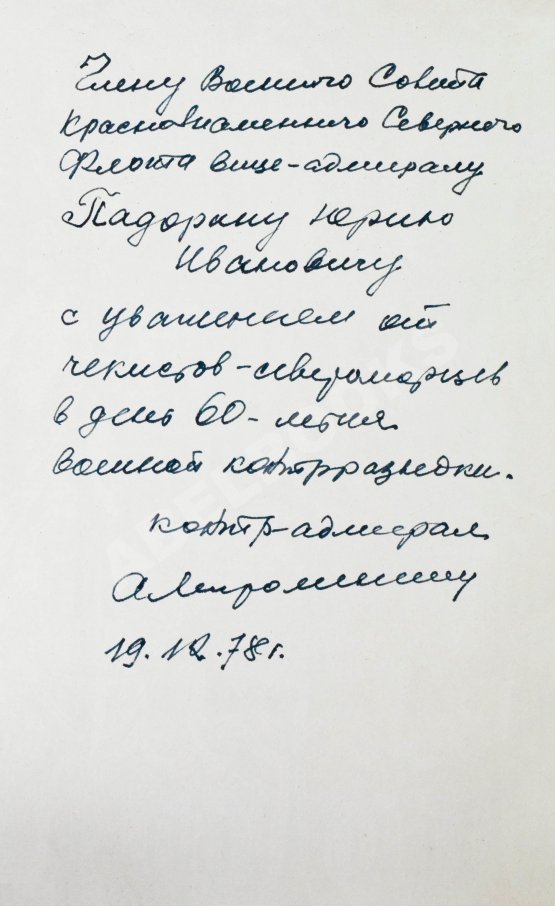 Члену Военного Совета
Краснознаменного Северного
Флота вице-адмиралу
Падорину Юрию
Ивановичу
с уважением от
чекистов-североморцев
в день 60-летия
военной контрразведки.
контр-адмирал
19.12.78г.